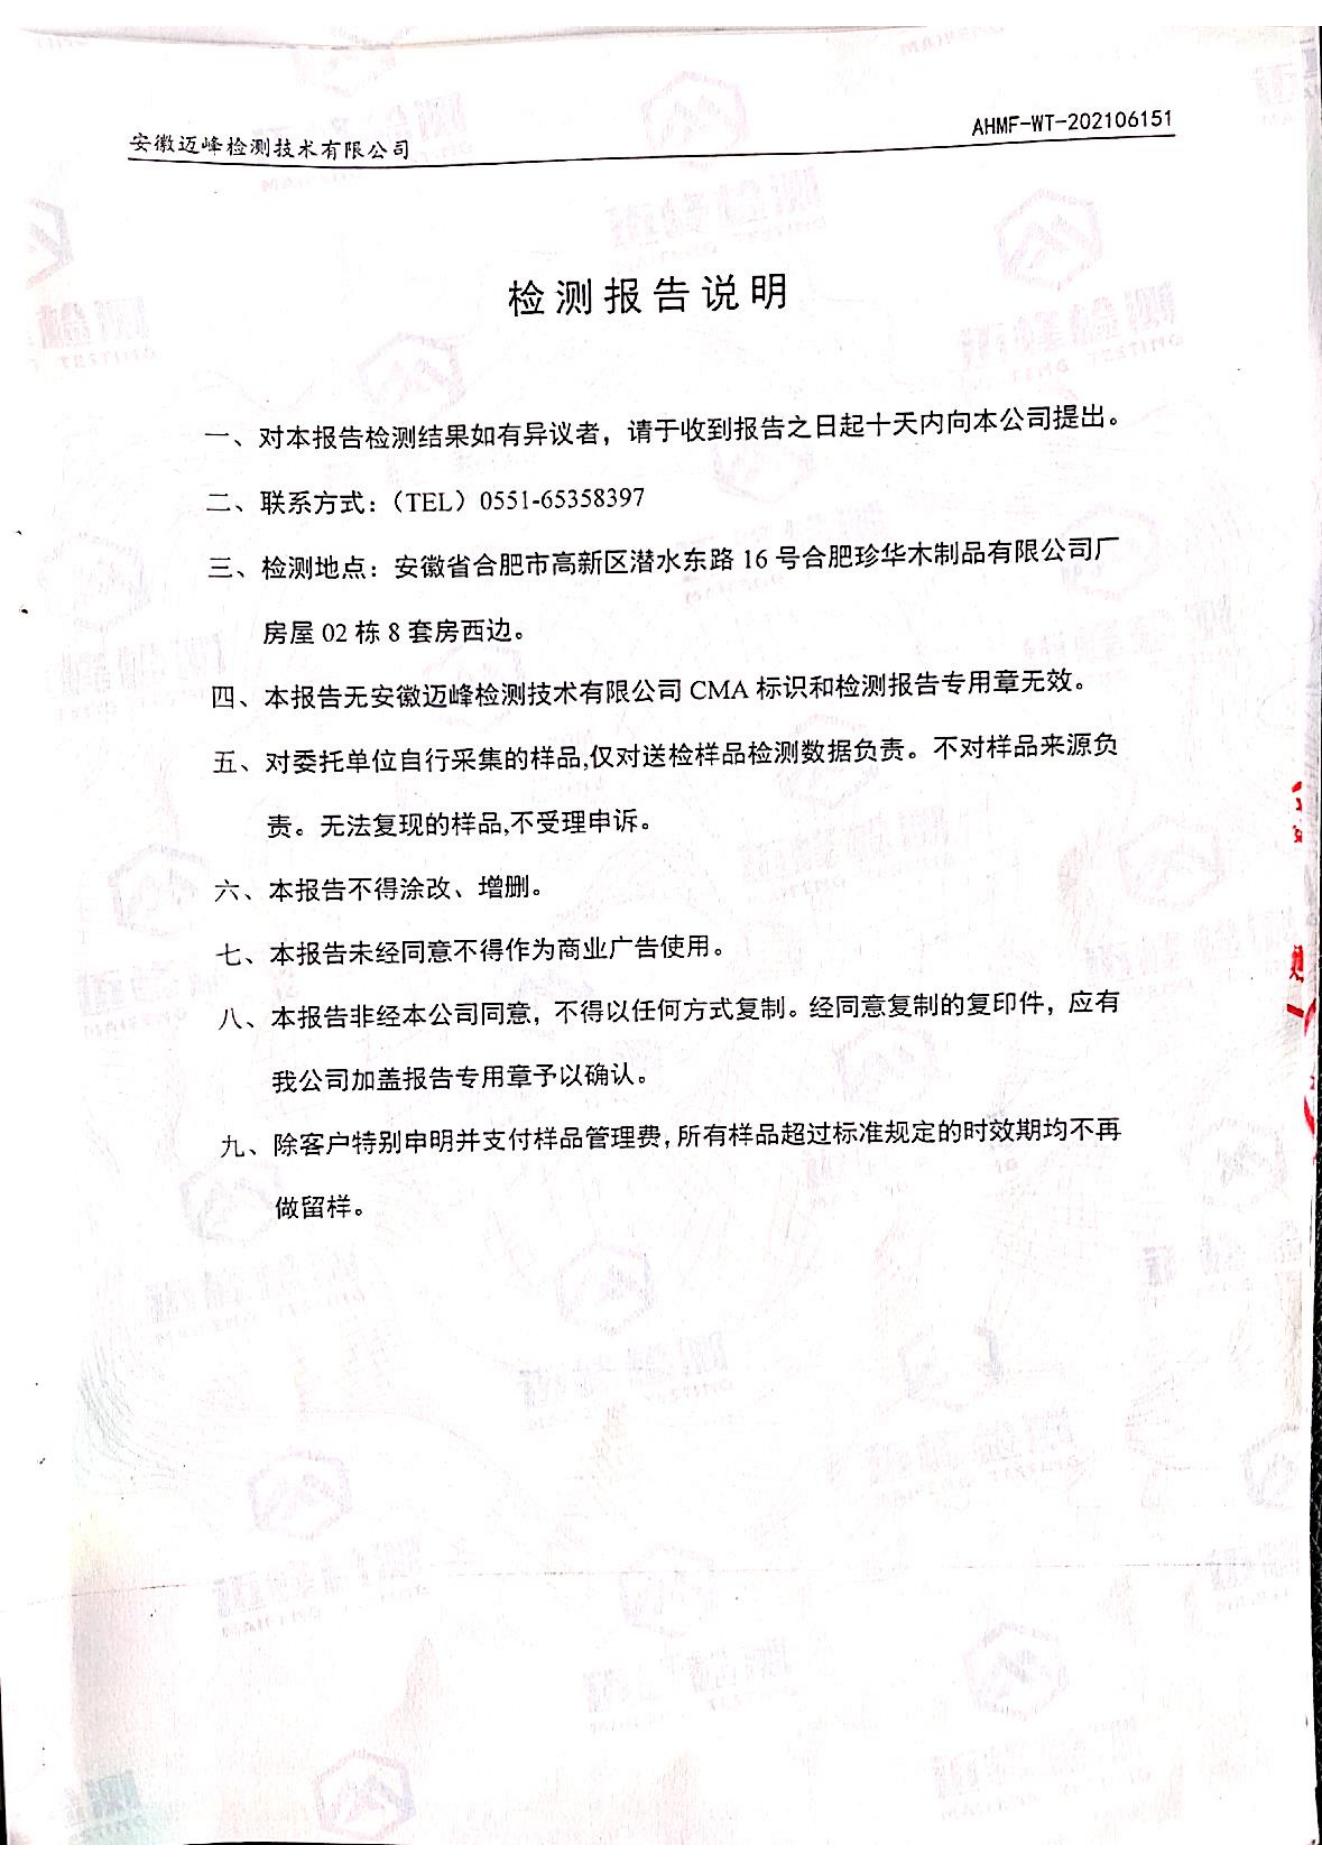 安徽迈峰检测技术有限公司
AHMF-WT-202106151
检测报告说明
一、对本报告检测结果如有异议者，请于收到报告之日起十天内向本公司提出。
二、联系方式：（TEL）0551-65358397
三、检测地点：安徽省合肥市高新区潜水东路 16 号合肥珍华木制品有限公司厂
房屋 02 栋 8 套房西边。
四、本报告无安徽迈峰检测技术有限公司 CMA 标识和检测报告专用章无效。
五、对委托单位自行采集的样品,仅对送检样品检测数据负责。不对样品来源负
责。无法复现的样品,不受理申诉。
六、本报告不得涂改、增删。
七、本报告未经同意不得作为商业广告使用。
八、本报告非经本公司同意，不得以任何方式复制。经同意复制的复印件，应有
我公司加盖报告专用章予以确认。
九、除客户特别申明并支付样品管理费，所有样品超过标准规定的时效期均不再
做留样。